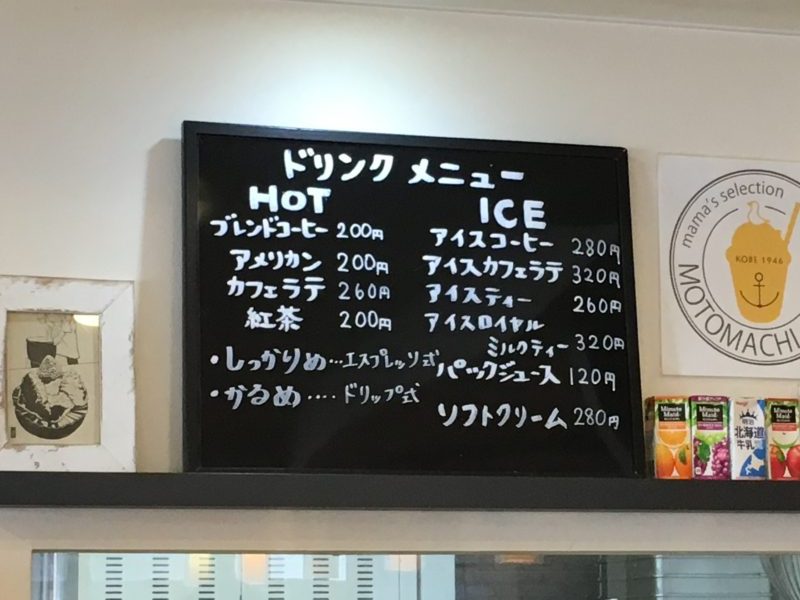 ドリンク メニュー
HOT
ブレンドコーヒー 200円
アメリカン 200円
カフェラテ 260円
紅茶 200円
・しっかりめ…エスプレッソ式
・かるめ‥‥ドリップ式
ICE
アイスコーヒー 280円
アイスカフェラテ 320円
アイスティー 260円
アイスロイヤル
ミルクティー 320円
パックジュース 120円
ソフトクリーム 280円
mama's selection
KOBE 1946
MOTOMACHI
Minute Maid
Minute Maid
明治
北海道
牛乳
Minute Maid